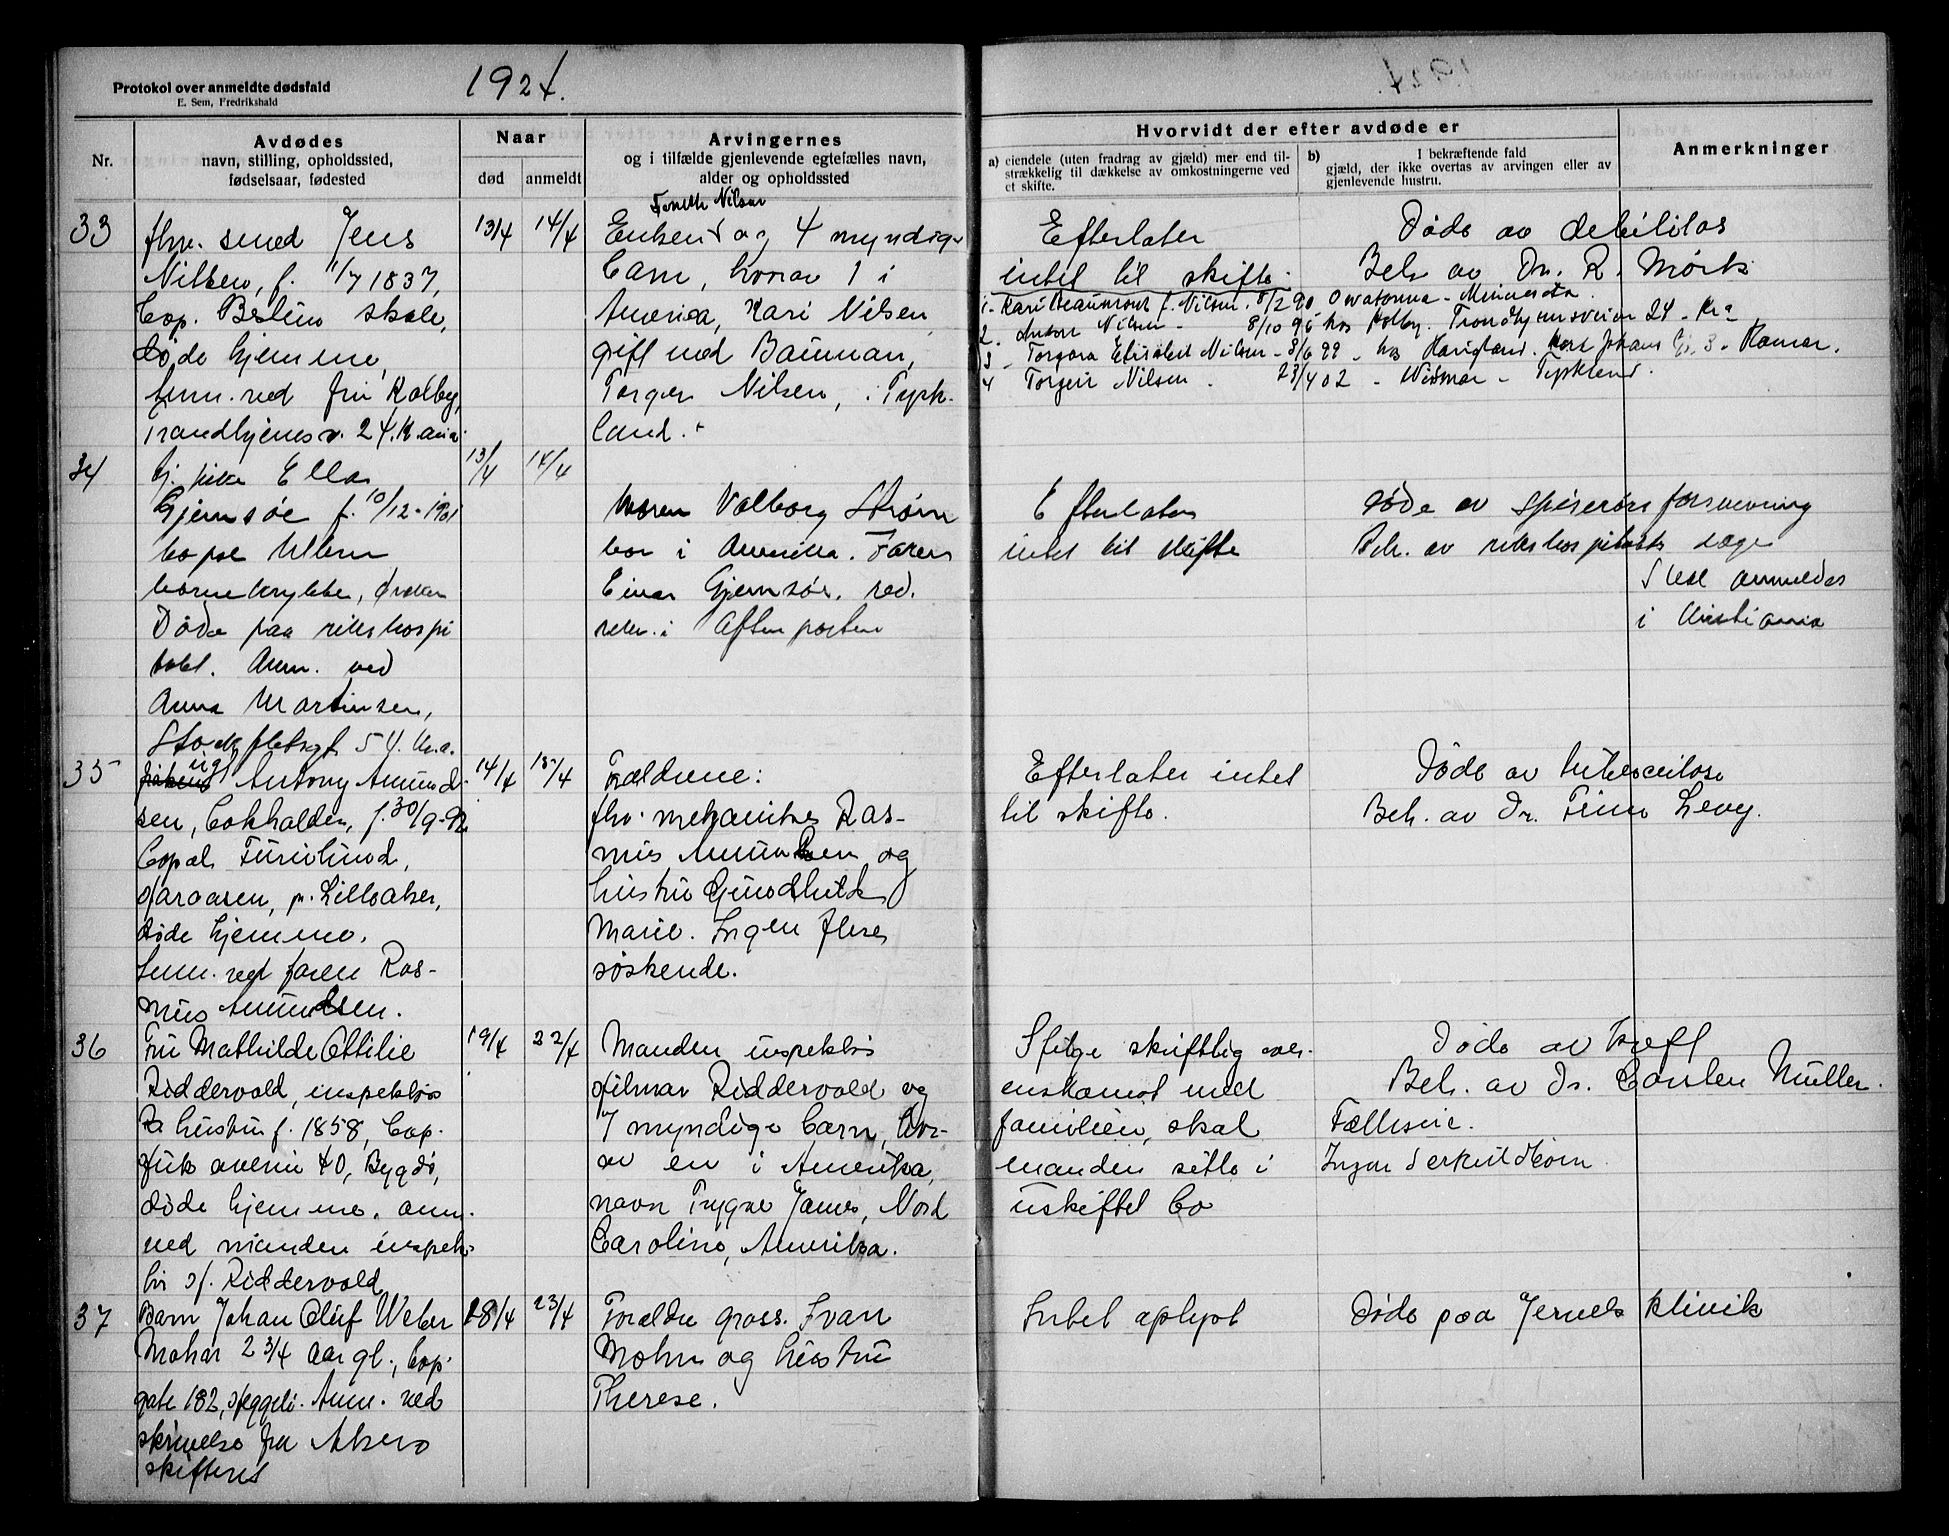 Protokol over anmeldte dødsfald
E. Sem, Fredrikshald
1924.
Nr.
Avdødes
navn, stilling, opholdssted,
fødselsaar, fødested
Naar
død
anmeldt
Arvingernes
og i tilfælde gjenlevende egtefælles navn,
alder og opholdssted
Hvorvidt der efter avdøde er
a) eiendele (uten fradrag av gjæld) mer end til-
strækkelig til dækkelse av omkostningerne ved
et skifte.
b) I bekræftende fald
gjæld, der ikke overtas av arvingen eller av
gjenlevende hustru.
Anmerkninger
33
fhv. smed Jens
Nilsen, f. 1/7 1837,
bop. Bestum skole,
døde hjemme,
Anm. ved fru Kolby,
Trondhjemsv. 24. K.ania
13/4
14/4
Nilsen
Enken og 4 myndige
barn, hvorav 1 i
Amerika, Kari Nilsen
gift med Bauman,
Torger Nilsen, i Tysk-
land.
Efterlater
intet til skifte.
Døde av debilitas
Beh. av Dr. R. Mørk
1. Kari Beaumont f. Nilsen 8/2 90 Owatonna - Minnesota
2. Anton Nilsen - 8/10 96 hos Kolby. Trondhjemsveien 24 - Kra
3 - Torgora Elisabet Nilsen - 8/6 99 - hos Haugland. Karl Johans G. 3 - Hamar.
4 Torgeir Nilsen - 23/4 02 - Wismar - Tyskland.
34
Gj. pike Ella
Gjemsøe f. 10/12-1901
bopæl Ullern
barnekrybbe, Øraker
Døde paa rikshospi
talet. Anm. ved
Anna Martinsen,
Stockfletsgt 54. Kr.a.
13/4
14/4
Moren Valborg Strøm
bor i Amerika. Faren
Einar Gjemsøe. red.
sekr. i Aftenposten
Efterlater
intet til skifte
Døde av spiserørsforsnevring
Beh. av rikshospitalets læge
Skal anmeldes
i Kristiania
35
ugl Antony Amund-
sen, bokholder, f. 30/9-92
bopæl Furulund,
Haraasen, pr. Lilleaker,
døde hjemme.
Anm. ved faren Ras-
mus Amundsen.
14/4
15/4
Forældrene:
fhv. mekaniker Ras-
mus Amundsen og
hustru Gundhild
Marie. Ingen flere
søskende.
Efterlater intet
til skifte.
Døde av tuberculose
Beh. av Dr. Finn Levy.
36
Fru Mathilde Ottilie
Riddervold, inspektør
Rs hustru f. 1858, bop.
Huk aveny 40, Bygdø,
døde hjemme. anm.
ved manden inspek-
tør Hj. Riddervold
19/4
22/4
Manden inspektør
Hilmar Riddervold og
7 myndige barn, hvor-
av en i Amerika,
navn Trygve James, Nord
Carolina, Amerika.
Ifølge skriftlig over-
enskomst med
familien, skal
manden sitte i
uskiftet bo
Døde av kreft
Beh. av Dr. Carsten Müller.
Fælleseie.
Ingen Særkuldbørn
37
Barn Johan Oluf Weber
Mohn 2 3/4 aar gl., bop.
gate 182, Heggeli. Anm. ved
skrivelse fra Akers
skifteret
18/4
23/4
Forældre gross. Ivan
Mohn og hustru
Therese.
Intet oplyst
Døde paa Jervels klinik